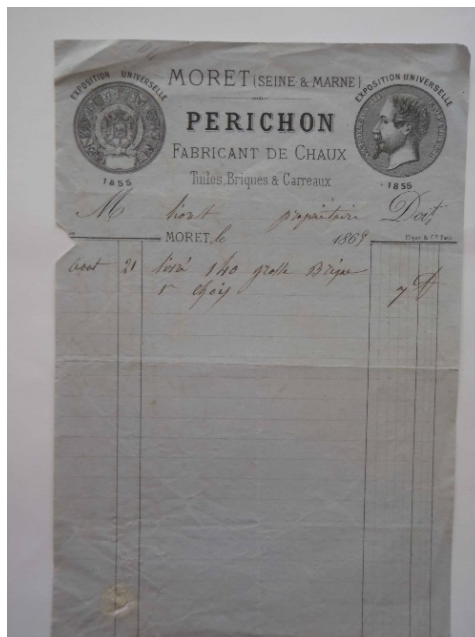 EXPOSITION UNIVERSELLE
1855
MORET (SEINE & MARNE)
PERICHON
FABRICANT DE CHAUX
Tuiles, Briques & Carreaux
EXPOSITION UNIVERSELLE
1855
M propriétaire Doit
MORET, le 186
aout 21 livré 140 grosse Brique
1r choix 7 f